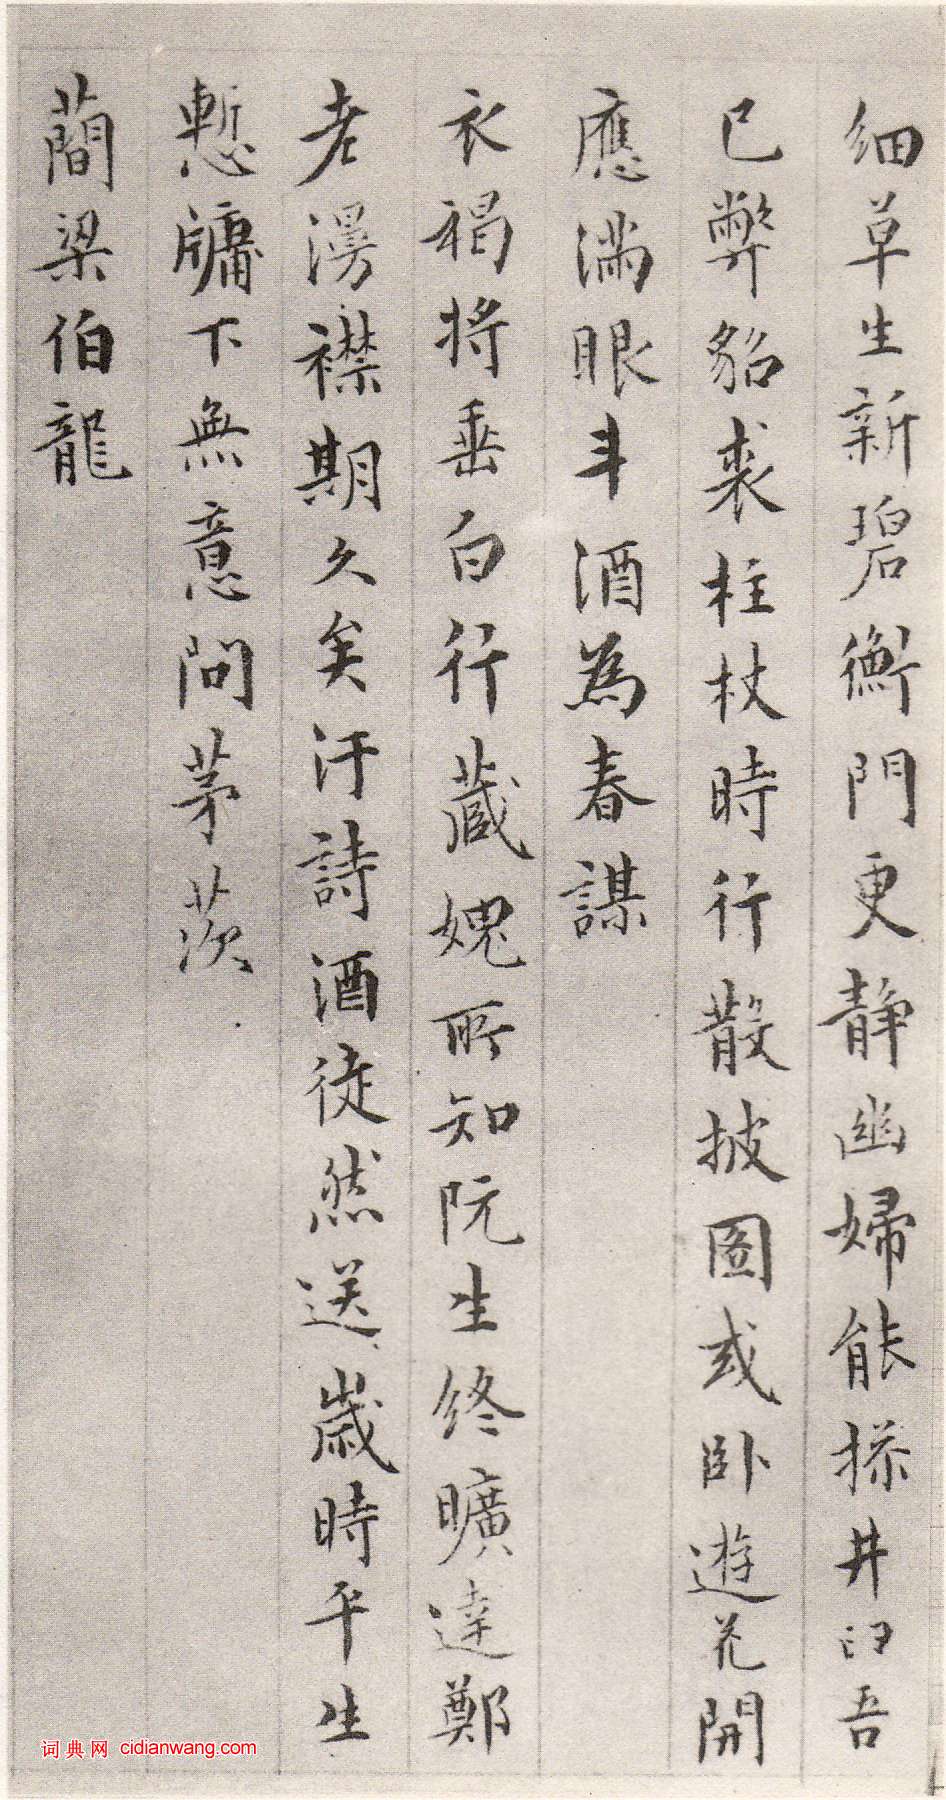 细草生新碧衡門更静幽婦能操井臼吾
已弊貂裘柱杖時行散披图或卧遊花開
應滿眼斗酒為春謀
衣褐将垂白行藏媿所知阮生终曠達鄭
老漫襟期久矣汙詩酒徒然送歲時平生
慙牖下無意問茅茨
蕳梁伯龍
词典网 cidianwang.com